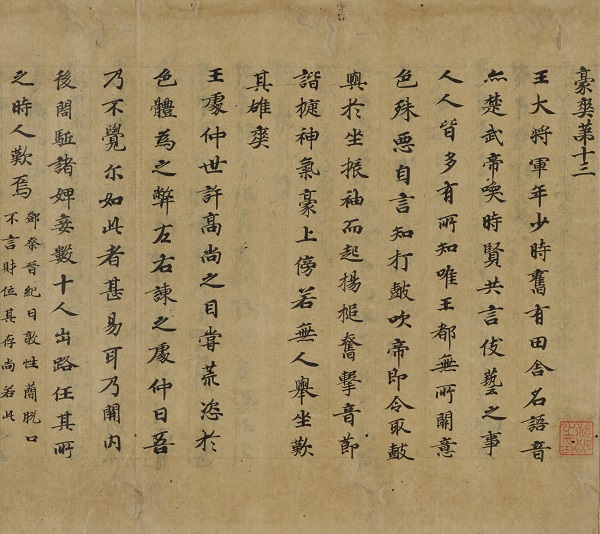 豪爽第十三
王大將軍年少時舊有田舍名語音
亦楚武帝喚時賢共言伎藝之事
人人皆多有所知唯王都無所關意
色殊惡自言知打鼓吹帝即令取鼓
與於坐振袖而起揚槌奮擊音節
諧捷神氣豪上傍若無人舉坐歎
其雄爽
王處仲世許高尚之目嘗荒恣於
色體為之弊左右諫之處仲曰吾
乃不覺尔如此者甚易耳乃開內
後閤駈諸婢妾數十人出路任其所
之時人歎焉
鄧粲晉紀曰敦性簡脫口
不言財位其存尚若此